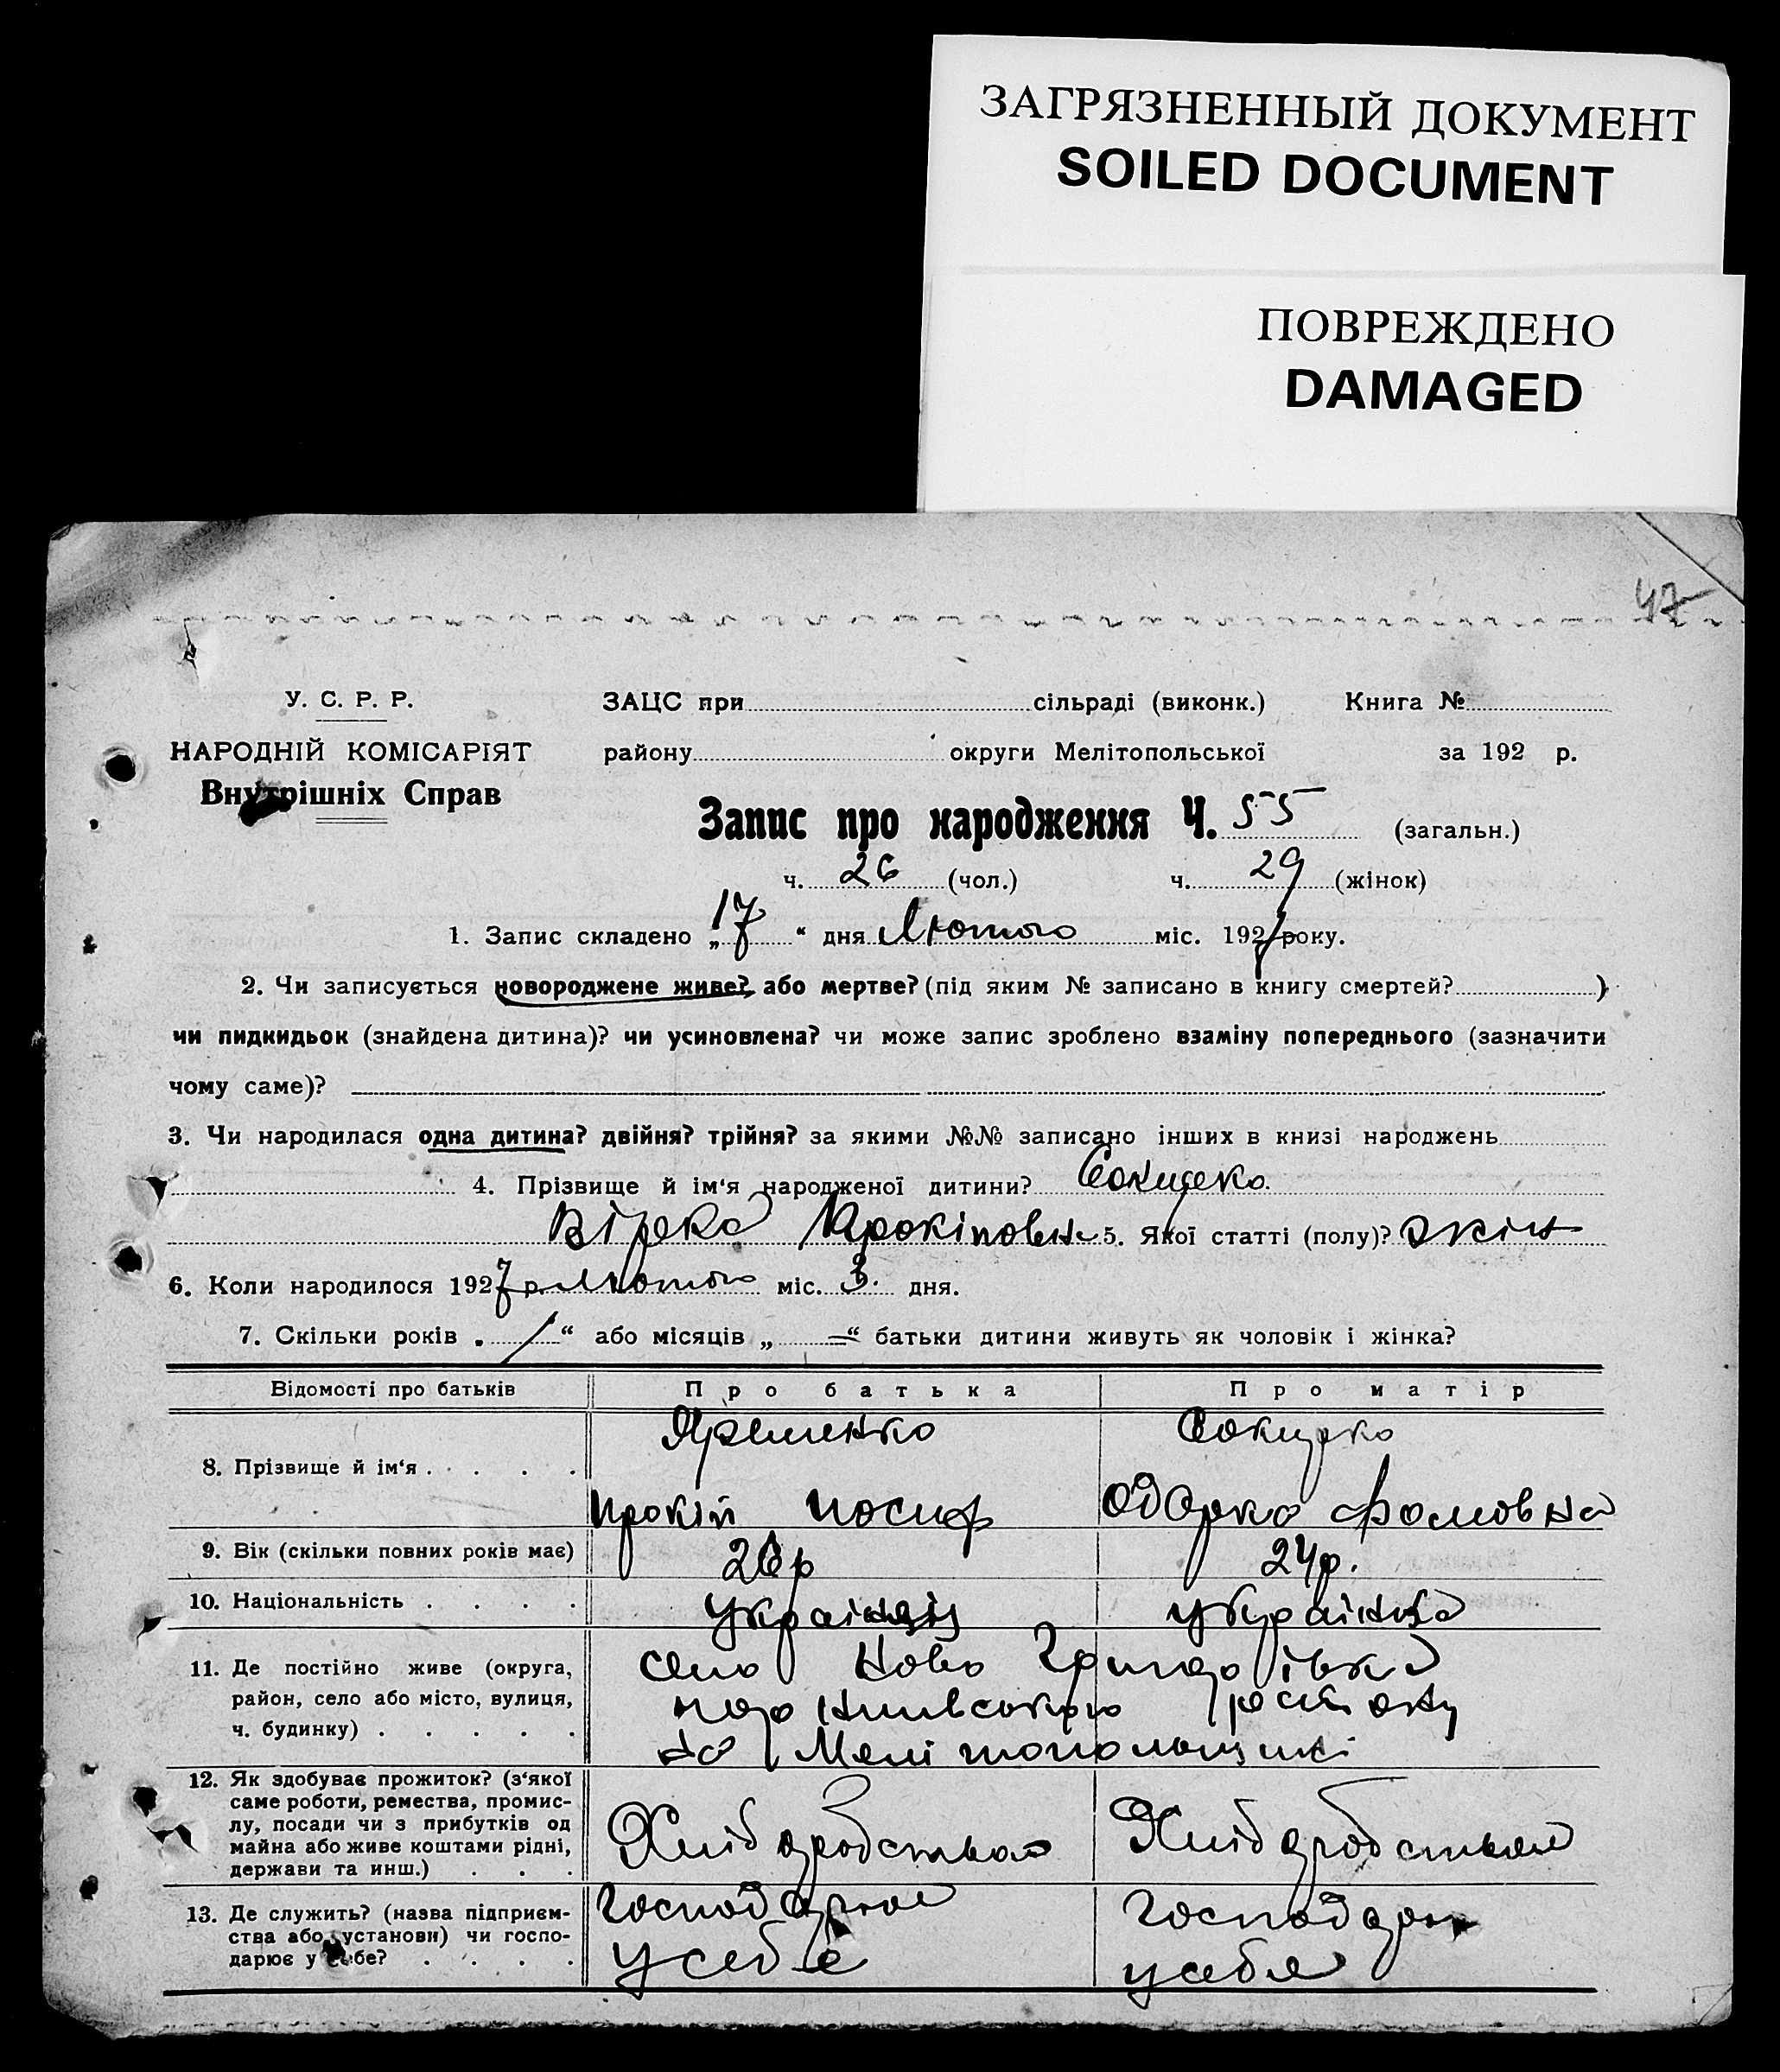 ЗАГРЯЗНЕННЫЙ ДОКУМЕНТ
SOILED DOCUMENT
ПОВРЕЖДЕНО
DAMAGED
47
У. С. Р. Р. ЗАЦС при сільраді (виконк.) Книга №
НАРОДНІЙ КОМІСАРІЯТ району округи Мелітопольської за 192 р.
Внутрішніх Справ
Запис про народження Ч. 55 (загальн.)
ч. 26 (чол.) ч. 29 (жінок)
1. Запис складено „17“ дня Лютого міс. 1927 року.
2. Чи записується новороджене живе? або мертве? (під яким № записано в книгу смертей? )
чи пидкидьок (знайдена дитина)? чи усиновлена? чи може запис зроблено взаміну попереднього (зазначити
чому саме)?
3. Чи народилася одна дитина? двійня? трійня? за якими №№ записано інших в книзі народжень
4. Прізвище й ім‘я народженої дитини?
Прокіповн 5. Якої статті (полу)? жін
6. Коли народилося 1927 р. Лютого міс. 3. дня.
7. Скільки років „ / “ або місяців „ — “ батьки дитини живуть як чоловік і жінка?
Відомості про батьків Про батька Про матір
Яременко
8. Прізвище й ім‘я
прокіп йосиф Одарка Фомовна
9. Вік (скільки повних років має) 26р 24р.
10. Національність українець українка
11. Де постійно живе (округа, село Ново Григорівка
район, село або місто, вулиця,
ч. будинку) на Мелітопольщині
12. Як здобуває прожиток? (з‘якої
саме роботи, ремества, промис-
лу, посади чи з прибутків од
майна або живе коштами рідні, Хлібаробством Хлібаробством
держави та инш.)
13. Де служить? (назва підприєм- Господарює Господарює
ства або установи) чи госпо-
дарює у себе? у себе у себе